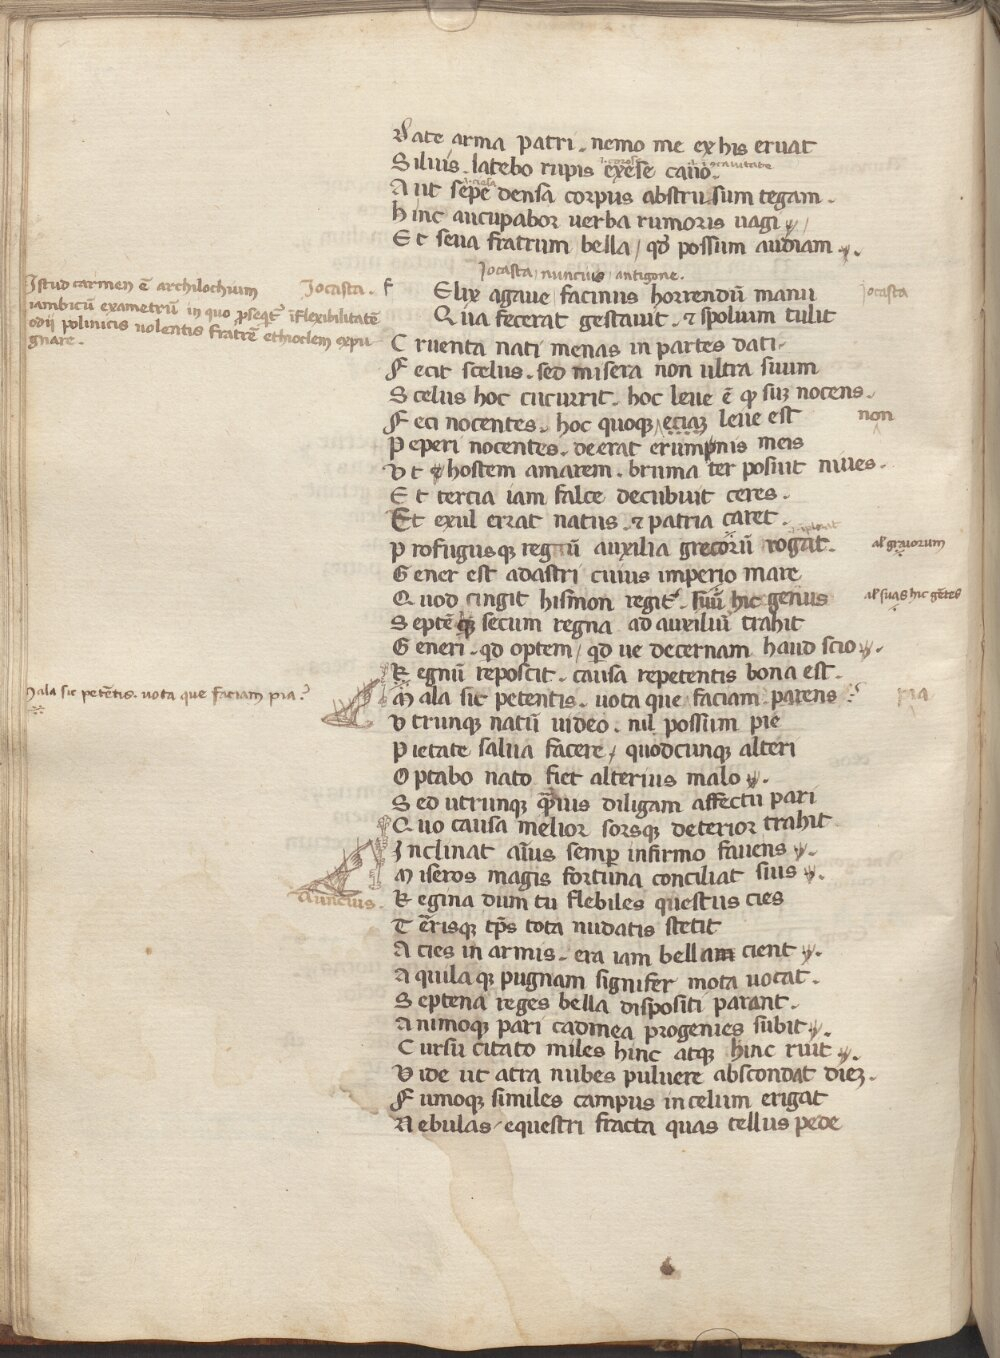 Date arma patri. nemo me ex his eruat
Siluis. latebo rupis exese cauo.
Aut sepe densa corpus abstrusum tegam.
hinc aucupabor uerba rumoris uagi
Et seua fratrum bella / qđ possum audiam.
Jocasta / nuncius / antigone.
Istud carmen ē archilochum
iambicū exametrū in quo ꝓseqt᷑ īflexibilitatē
odij polinicis uolentis fratrē ethioclem expu
gnare.
Jocasta. f Elix agaue facinus horrendū manu Jocasta
Qua fecerat gestauit. ⁊ spolium tulit
Cruenta nati menas in partes dati
Fecit scelus. sed misera non ultra suum
Scelus hoc cucurrit. hoc leue ē ꝙ suꝫ nocens.
Feci nocentes. hoc quoqꝫ eciaꝫ leue est non
Peperi nocentes. deerat erumpnis meis
Vt hostem amarem. bruma ter posuit niues.
Et tercia iam falce decubuit ceres.
Et exul errat natus. ⁊ patria caret.
Profugusqꝫ regnū auxilia grecorū rogat. al' graiorum
Gener est adastri cuius imperio mare
Quod cingit hismon regit᷑. suū hic genus al' suas hic gētes
Septēqꝫ secum regna ad auxiliū trahit
Generi. qđ optem / qđ ue decernam haud scio.
Regnū reposcit. causa repetentis bona est.
Mala sic petētis. uota que faciam pia?
Mala sic petentis. uota que faciam parens? pia
Vtrunqꝫ natū uideo. nil possum pie
Pietate salua facere / quodcunqꝫ alteri
Optabo nato fiet alterius malo.
Sed utrunqꝫ q̄uis diligam affectu pari
Quo causa melior sorsqꝫ deterior trahit
Inclinat aīus semꝑ infirmo fauens.
Miseros magis fortuna conciliat suis.
Nuncius. Regina dum tu flebiles questus cies
Terrisqꝫ tꝑs tota nudatis stetit
Acies in armis. era iam bellam cient.
Aquilaqꝫ pugnam signifer mota uocat.
Septena reges bella dispositi parant.
Animoqꝫ pari cadmea progenies subit.
Cursu citato miles hinc atqꝫ hinc ruit.
Vide ut atra nubes puluere abscondat dieꝫ.
Fumoqꝫ similes campus in celum erigat
Nebulas / equestri fracta quas tellus pede